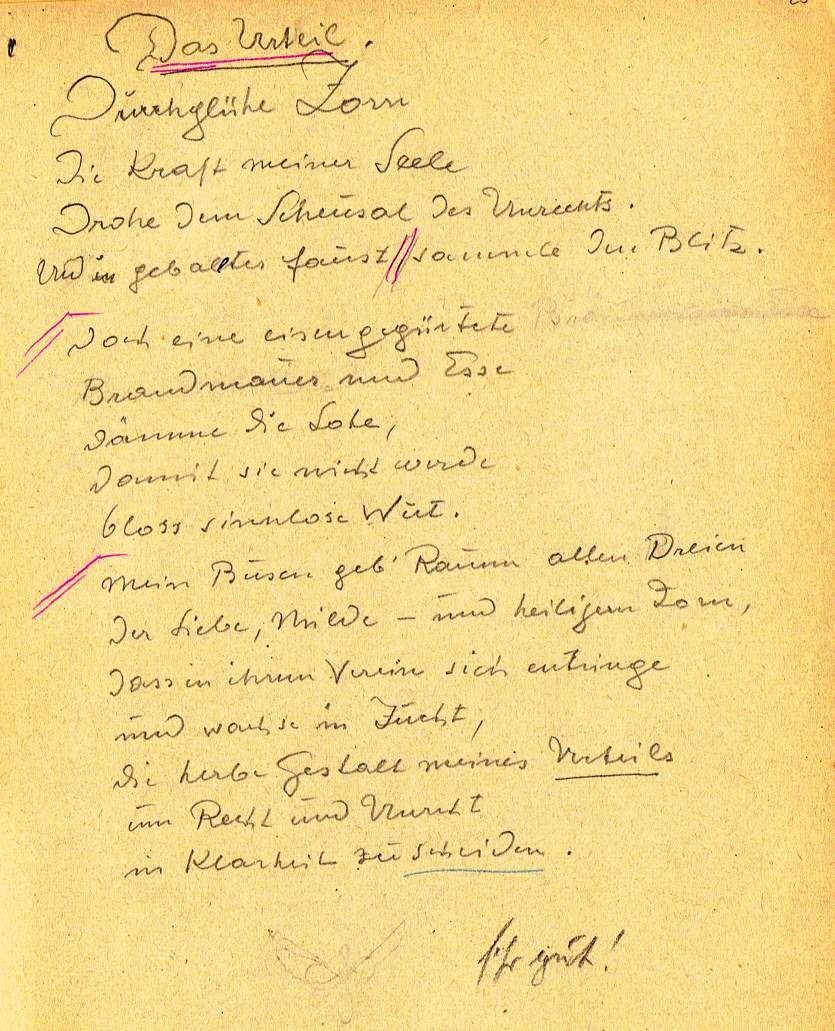 Das Urteil.
Durchglühe Zorn
Die Kraft meiner Seele
Drohe dem Scheusal des Unrechts.
Und in geballter Faust // sammle den Blitz.
Doch eine eisengegürtete
Brandmauer und Esse
Dämme die Lohe,
Damit sie nicht werde
bloss sinnlose Wut.
Mein Busen geb' Raum allen Dreien
Der Liebe, Milde – und heiligem Zorn,
Dass in ihrem Verein sich entringe
und wachse in Zucht,
die herbe Gestalt meines Urteils
um Recht und Unrecht
in Klarheit zu scheiden.
sehr gut!